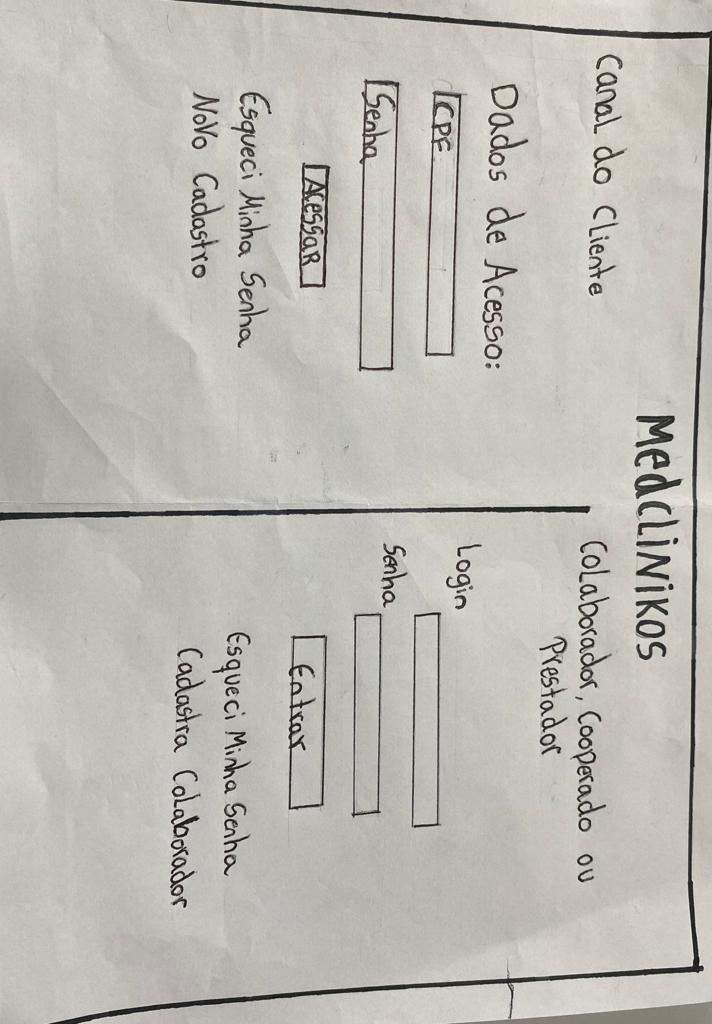 MedCLiNiKOS
Canal do Cliente
Dados de Acesso:
CPF
Senha
Acessar
Esqueci Minha Senha
Novo Cadastro
Colaborador, Cooperado ou
Prestador
Login
Senha
Entrar
Esqueci Minha Senha
Cadastra Colaborador